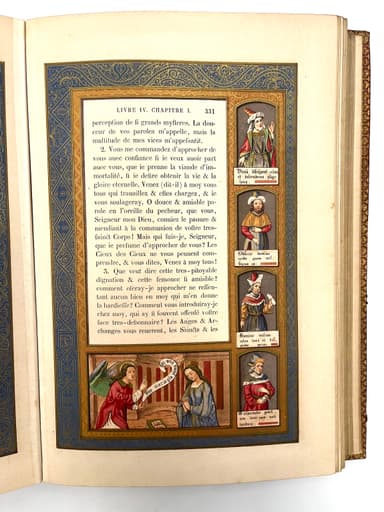 LIVRE IV. CHAPITRE I. 331
perception de si grands mysteres. La dou-
ceur de vos paroles m'appelle, mais la
multitude de mes vices m'appesantit.
2. Vous me commandez d'approcher de
vous auec confiance si ie veux auoir part
auec vous, que ie prenne la viande d'im-
mortalité, si ie desire obtenir la vie & la
gloire eternelle. Venez (dit-il) à moy vous
tous qui trauaillez & estes chargez, & ie
vous soulageray, O douce & amiable pa-
role en l'oreille du pecheur, que vous,
Seigneur mon Dieu, conuiez le pauure &
mendiant à la communion de vostre tres-
sainct Corps! Mais qui suis-je, Seigneur,
que ie presume d'approcher de vous? Les
Cieux des Cieux ne vous peuuent com-
prendre, & vous dites, Venez à moy tous!
3. Que veut dire cette tres-pitoyable
dignation & cette semonce si amiable?
comment oseray-je approcher ne ressen-
tant aucun bien en moy qui m'en donne
la hardiesse? Comment vous introduiray-je
chez moy, qui ay si souuent offensé vostre
face tres-debonnaire? Les Anges & Ar-
changes vous reuerent, les Saincts & les